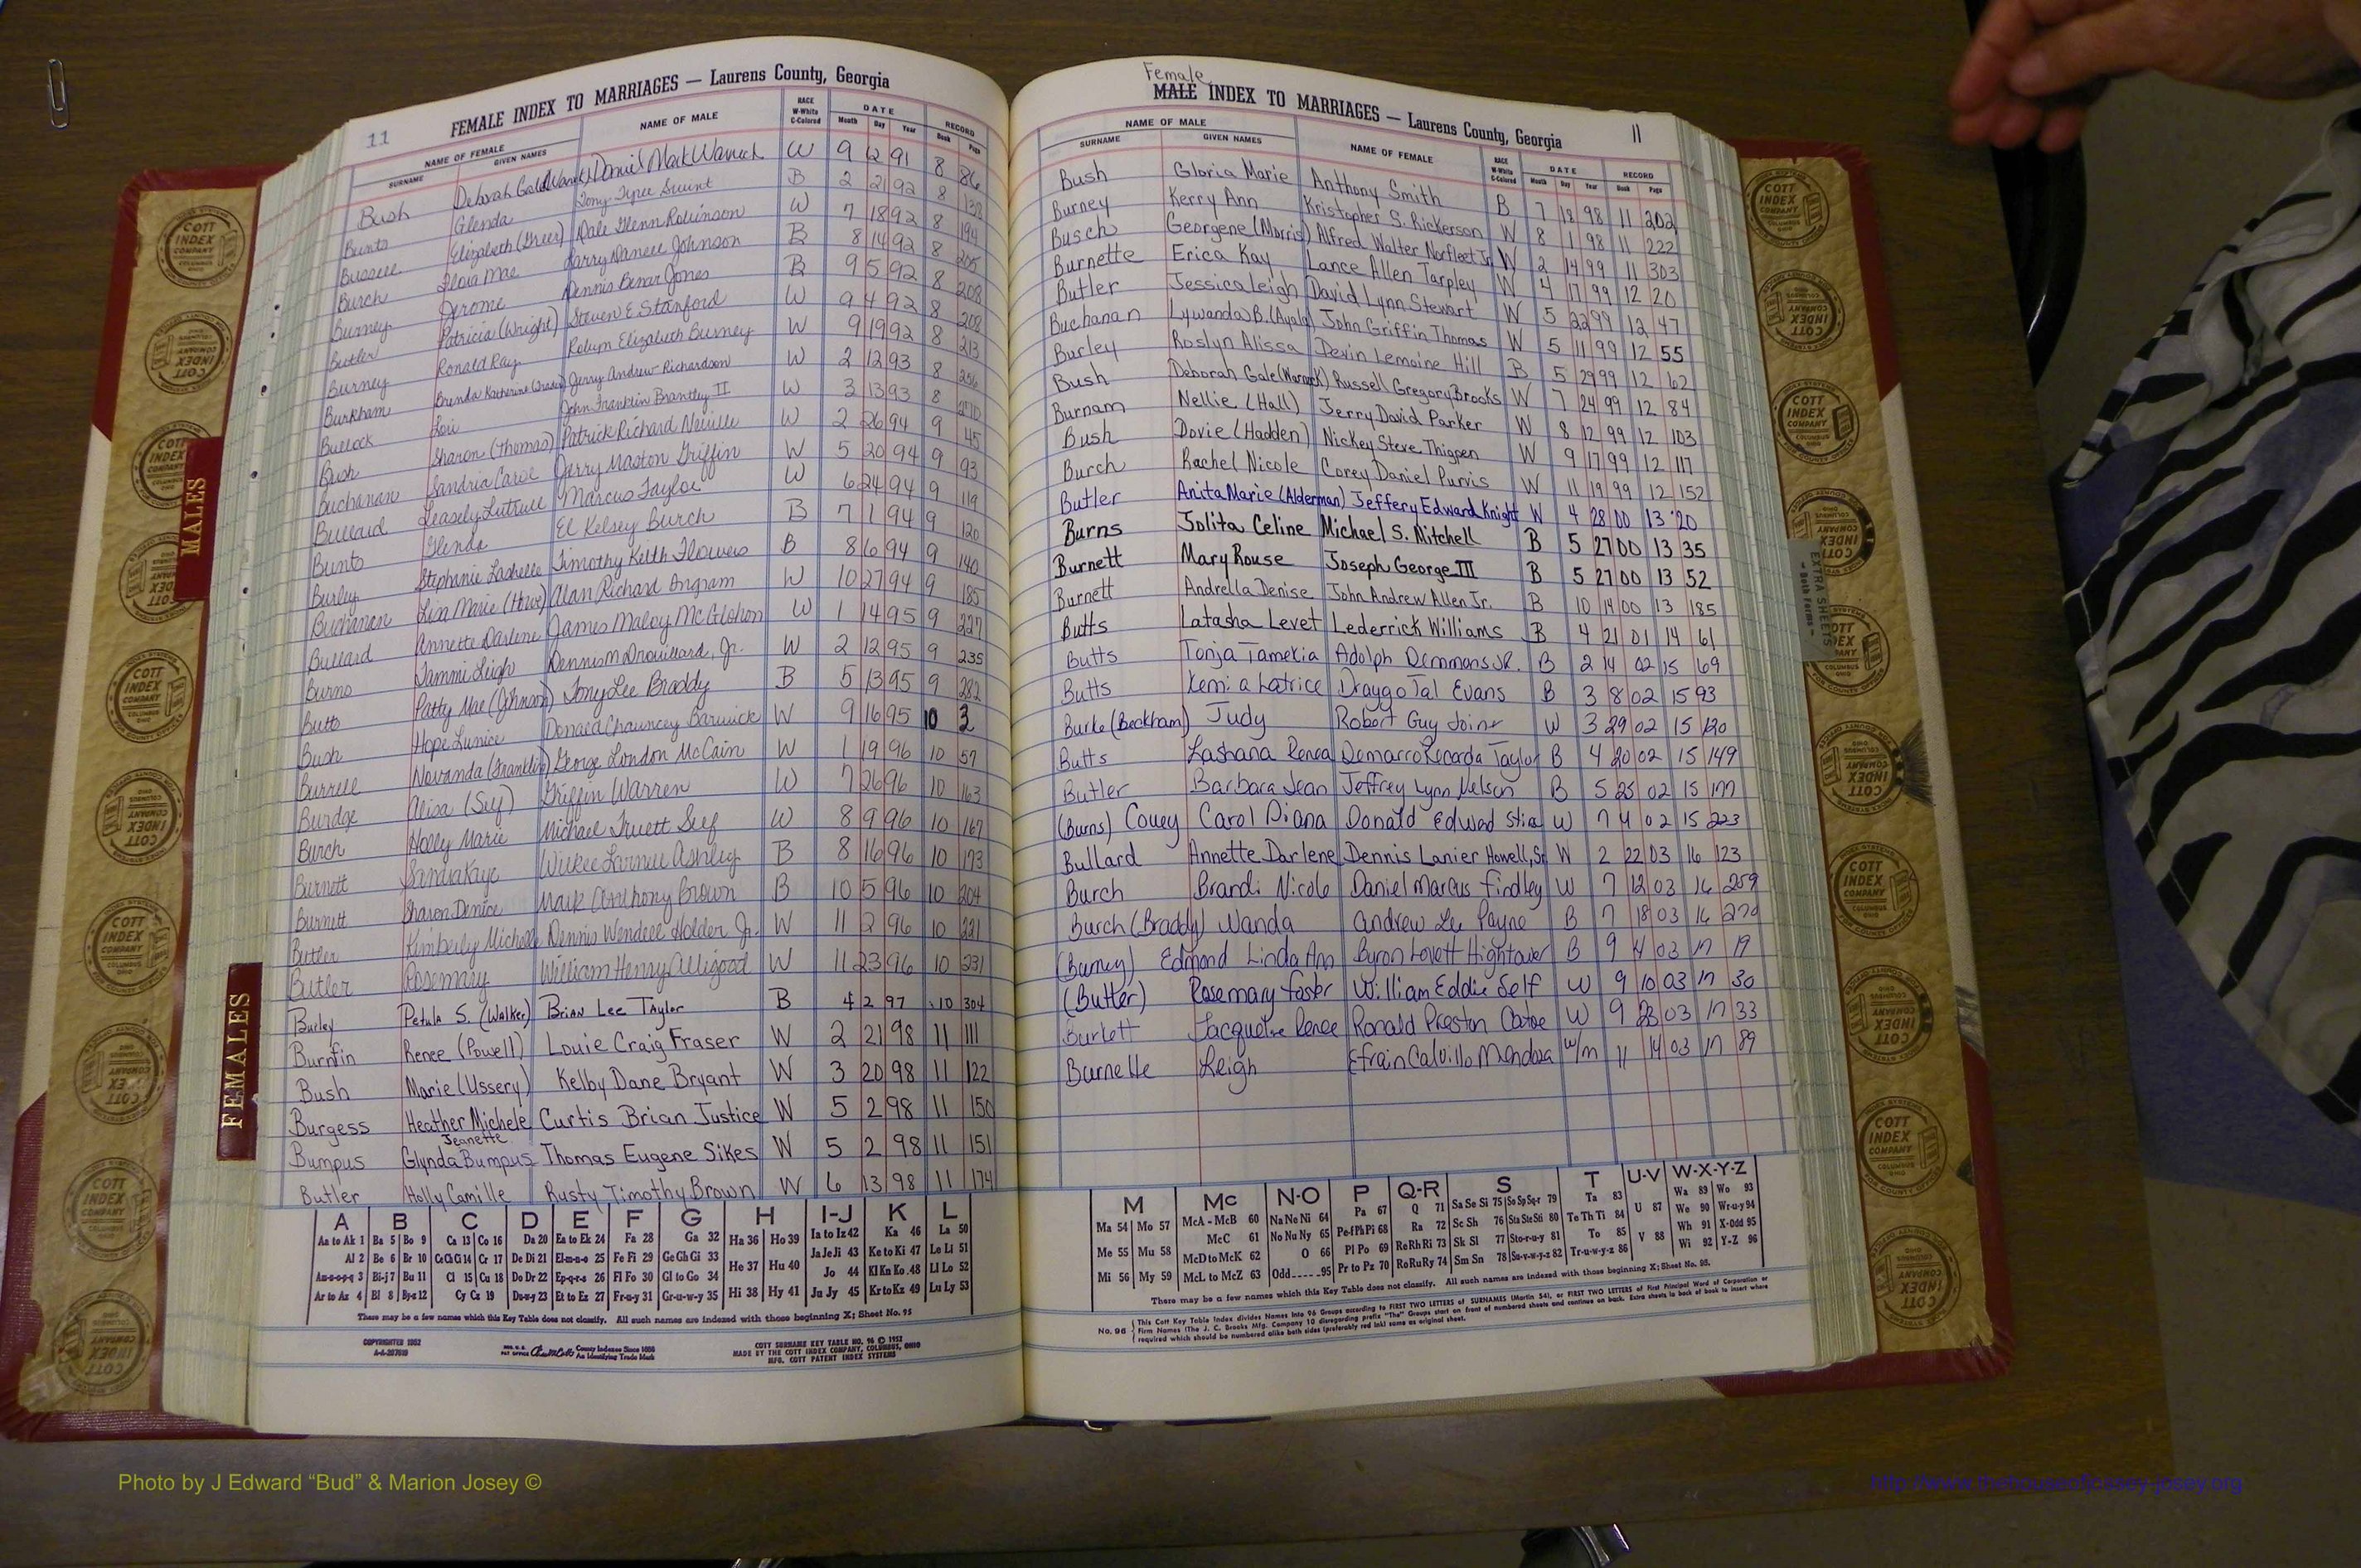 11
FEMALE INDEX TO MARRIAGES — Laurens County, Georgia
NAME OF FEMALE NAME OF MALE RACE W-White C-Colored DATE RECORD
SURNAME GIVEN NAMES Month Day Year Book Page
Bush Deborah Gale (Warnock) Daniel Mack Warnock W 9 12 91 8 86
Bunts Glenda Tony Tyree Swint B 2 21 92 8 138
Elizabeth (Greer) Dale Glenn Robinson W 7 18 92 8 194
Burch Larry Daniel Johnson B 8 14 92 8 205
Burney Jerome Dennis Benar Jones B 9 5 92 8 208
Butler Patricia (Wright) Steven E. Stanford W 9 4 92 8 208
Burney Ronald Ray Robyn Elizabeth Burney W 9 19 92 8 213
Burkham Brenda Katherine Jerry Andrew Richardson W 2 12 93 8 256
Bullock Lori John Franklin Brantley II W 3 13 93 8 270
Bush Sharon (Thomas) Patrick Richard Neville W 2 26 94 9 45
Buchanan Sandria Carol Jerry Maston Griffin W 5 20 94 9 93
Bullard Leasely Luttrell Marcus Taylor W 6 24 94 9 119
Bunts Glenda El Kelsey Burch B 7 1 94 9 120
Burley Stephanie Lachelle Timothy Keith Flowers B 8 6 94 9 140
Buchanan Lisa Marie (Howe) Alan Richard Ingram W 10 27 94 9 185
Bullard Annette Darlene James Maloy McGlohon W 1 14 95 9 227
Burns Tammi Leigh Dennis M Drouillard, Jr. W 2 12 95 9 235
Butts Patty Mae (Johnson) Tony Lee Braddy B 5 13 95 9 282
Bush Hope Eunice Donald Chauncey Barwick W 9 16 95 10 3
Burrell Novanda (Franklin) George London McCain W 1 19 96 10 57
Burdge Alisa (Self) Griffin Warren W 7 26 96 10 163
Burch Holly Marie Michael Truett Self W 8 9 96 10 167
Burnett Sandra Kaye Willie Larnell Ashley B 8 16 96 10 173
Burnett Sharon Denice Mark Anthony Brown B 10 5 96 10 204
Butler Kimberly Michelle Dennis Wendell Holder Jr. W 11 2 96 10 221
Butler Rosemary William Henry Alligood W 11 23 96 10 231
Burley Petula S. (Walker) Brian Lee Taylor B 4 2 97 10 304
Burnfin Renee (Powell) Louie Craig Fraser W 2 21 98 11 111
Bush Marie (Ussery) Kelby Dane Bryant W 3 20 98 11 122
Burgess Heather Michele Curtis Brian Justice W 5 2 98 11 150
Jeanette
Bumpus Glynda Bumpus Thomas Eugene Sikes W 5 2 98 11 151
Butler Holly Camille Rusty Timothy Brown W 6 13 98 11 174
A B C D E F G H I-J K L
Aa to Ak 1 Ba 5 Bo 9 Ca 13 Co 16 Da 20 Ea to Ek 24 Fa 28 Ga 32 Ha 36 Ho 39 Ia to Iz 42 Ka 46 La 50
Al 2 Be 6 Br 10 Ce Ch Ci 14 Cr 17 De Di 21 El-m-n-o 25 Fe Fi 29 Ge Gh Gi 33 He 37 Hu 40 Ja Je Ji 43 Ke to Ki 47 Le Li 51
Am-n-o-p-q 3 Bi-j 7 Bu 11 Cl 15 Cu 18 Do Dr 22 Ep-q-r-s 26 Fl Fo 30 Gl to Go 34 Hi 38 Hy 41 Jo 44 Kl Kn Ko 48 Ll Lo 52
Ar to Az 4 Bl 8 By-z 12 Cy Cz 19 Du-w-y 23 Et to Ez 27 Fr-u-y 31 Gr-u-w-y 35 Ju Jy 45 Kr to Kz 49 Lu Ly 53
There may be a few names which this Key Table does not classify. All such names are indexed with those beginning X; Sheet No. 95
COPYRIGHTED 1952
County Indexes Since 1888
An Identifying Trade Mark
COTT SURNAME KEY TABLE NO. 96 © 1952
MADE BY THE COTT INDEX COMPANY, COLUMBUS, OHIO
MFG. COTT PATENT INDEX SYSTEMS
Female
MALE INDEX TO MARRIAGES — Laurens County, Georgia 11
NAME OF MALE NAME OF FEMALE RACE W-White C-Colored DATE RECORD
SURNAME GIVEN NAMES Month Day Year Book Page
Bush Gloria Marie Anthony Smith B 7 18 98 11 202
Burney Kerry Ann Kristopher S. Rickerson W 8 1 98 11 222
Busch Georgene (Morris) Alfred Walter Norfleet Jr. W 2 14 99 11 303
Burnette Erica Kay Lance Allen Tarpley W 4 17 99 12 20
Butler Jessica Leigh David Lynn Stewart W 5 22 99 12 47
Buchanan Lywanda B. (Ayala) John Griffin Thomas W 5 11 99 12 55
Burley Roslyn Alissa Devin Lemoine Hill B 5 29 99 12 62
Bush Deborah Gale (Warnock) Russell Gregory Brooks W 7 24 99 12 84
Burnam Nellie (Hall) Jerry David Parker W 8 12 99 12 103
Bush Dovie (Hadden) Nickey Steve Thigpen W 9 17 99 12 117
Burch Rachel Nicole Corey Daniel Purvis W 11 19 99 12 152
Butler Anita Marie (Alderman) Jeffery Edward Knight W 4 28 00 13 20
Burns Jolita Celine Michael S. Mitchell B 5 27 00 13 35
Burnett Mary Rouse Joseph George III B 5 27 00 13 52
Burnett Andrella Denise John Andrew Allen Jr. B 10 14 00 13 185
Butts Latasha Levet Lederrick Williams B 4 21 01 14 61
Butts Tonja Tamekia Adolph Demmons JR. B 2 14 02 15 69
Butts Kemia Latrice Draygo Jal Evans B 3 8 02 15 93
Burke (Beckham) Judy Robert Guy Joiner W 3 29 02 15 120
Butts Lashana Renea Demarco Ricarda Taylor B 4 20 02 15 149
Butler Barbara Jean Jeffrey Lynn Nelson B 5 25 02 15 177
(Burns) Couey Carol Diana Donald Edward W 7 4 02 15 223
Bullard Annette Darlene Dennis Lanier Howell, Sr W 2 22 03 16 123
Burch Brandi Nicole Daniel Marcus Findley W 7 12 03 16 259
Burch (Braddy) Wanda Andrew Lee Payne B 7 18 03 16 270
(Burney) Edmond Linda Ann Byron Lovett Hightower B 9 4 03 17 19
(Butler) Rosemary Foster William Eddie Self W 9 10 03 17 30
Burkett Jacqueline Renee Ronald Preston W 9 23 03 17 33
Burnette Leigh Efrain Calvillo Mendoza w/m 11 14 03 17 89
M Mc N-O P Q-R S T U-V W-X-Y-Z
Ma 54 Mo 57 McA - McB 60 Na Ne Ni 64 Pa 67 Q 71 Sa Se Si 75 So Sp Sq-r 79 Ta 83 U 87 Wa 89 Wo 93
Me 55 Mu 58 McC 61 No Nu Ny 65 Pe Pf Ph Pi 68 Ra 72 Sc Sh 76 Sta Ste Sti 80 Te Th Ti 84 V 88 We 90 Wr-u-y 94
Mi 56 My 59 McD to McK 62 O 66 Pl Po 69 Re Rh Ri 73 Sk Sl 77 Sto-r-u-y 81 To 85 Wh 91 X-Odd 95
McL to McZ 63 Odd-----95 Pr to Pz 70 Ro Ru Ry 74 Sm Sn 78 Su-v-w-y-z 82 Tr-u-w-y-z 86 Wi 92 Y-Z 96
There may be a few names which this Key Table does not classify. All such names are indexed with those beginning X; Sheet No. 95.
No. 96 This Cott Key Table Index divides Names into 96 Groups according to FIRST TWO LETTERS of SURNAMES (Martin 54), or FIRST TWO LETTERS of First Principal Word of Corporation or
Firm Names (The J. C. Brooks Mfg. Company 10 disregarding prefix "The") Groups start on front of numbered sheets and continue on back. Extra sheets in back of book to insert where
required which should be numbered alike both sides (preferably red ink) same as original sheet.
MALES
FEMALES
EXTRA SHEETS
— Both Forms —
COTT INDEX COMPANY COLUMBUS OHIO
Photo by J Edward “Bud” & Marion Josey ©
http://www.thehouseofcasey-josey.org